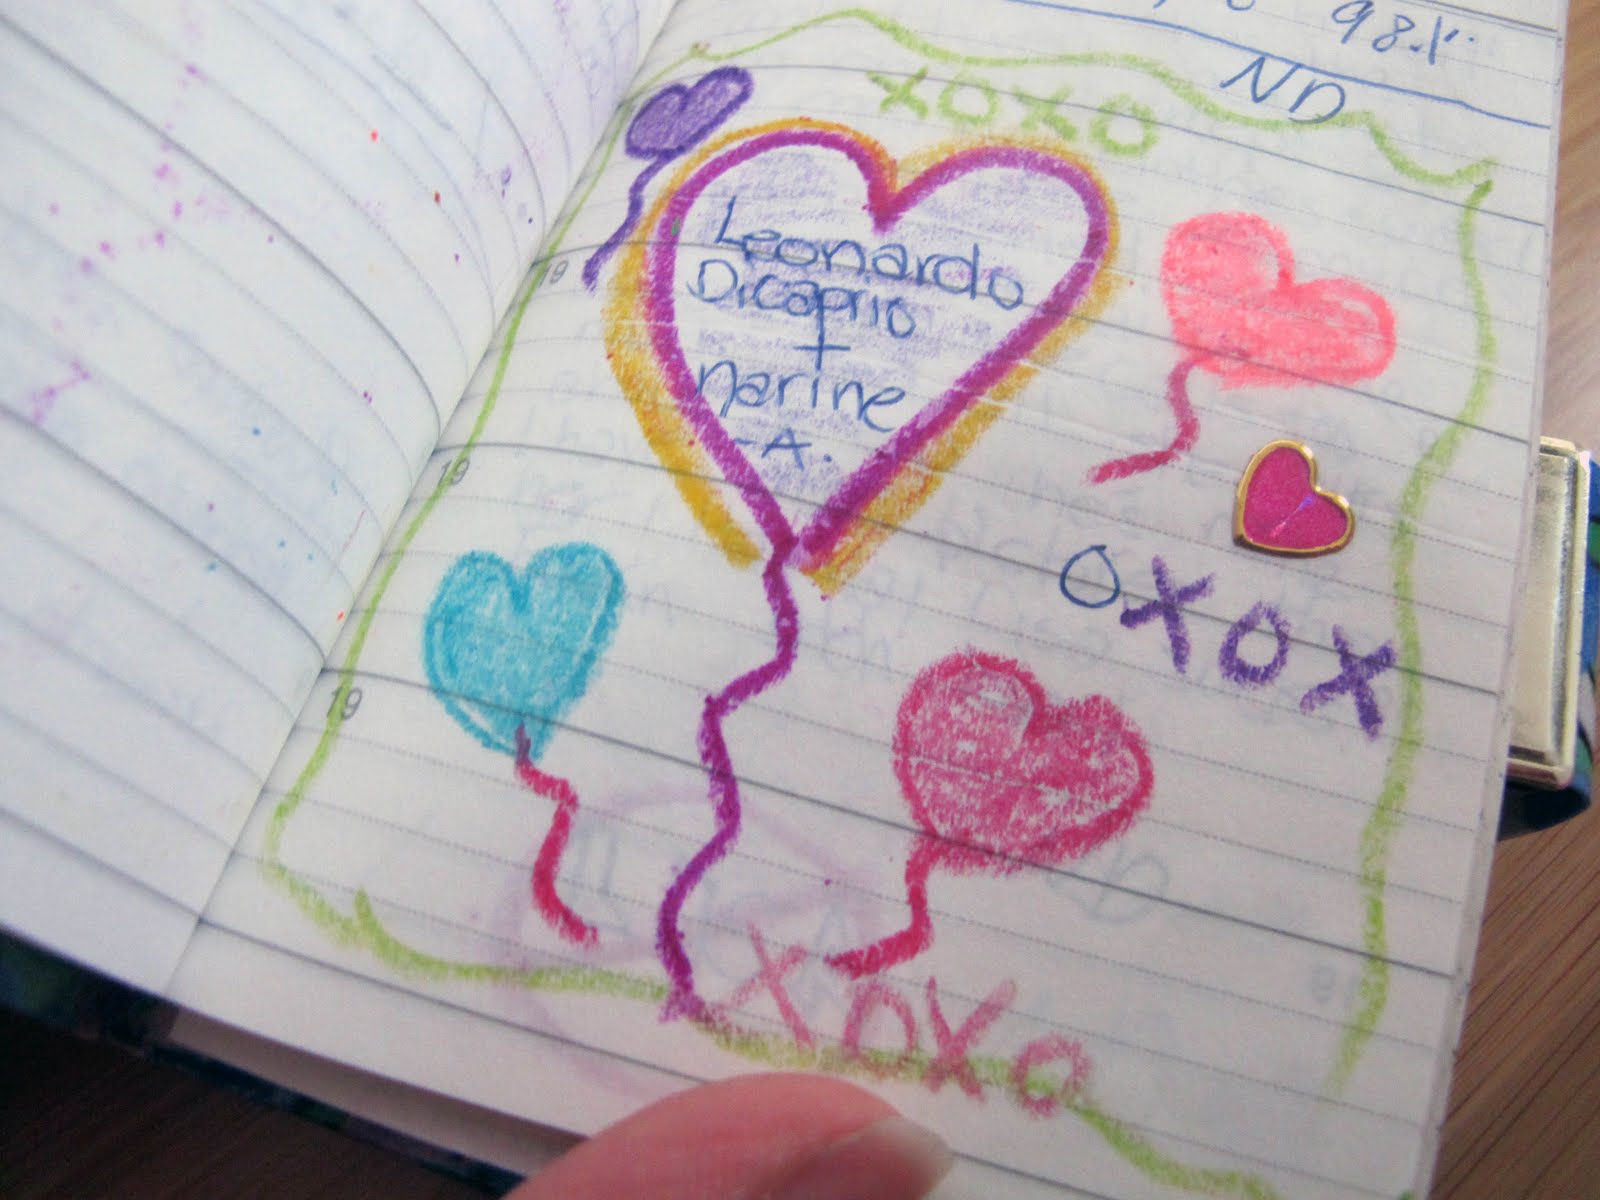 98.1.
ND
XOXO
Leonardo
Dicaprio
+
narine
-A.
19
19
19
OXOX
XOXO